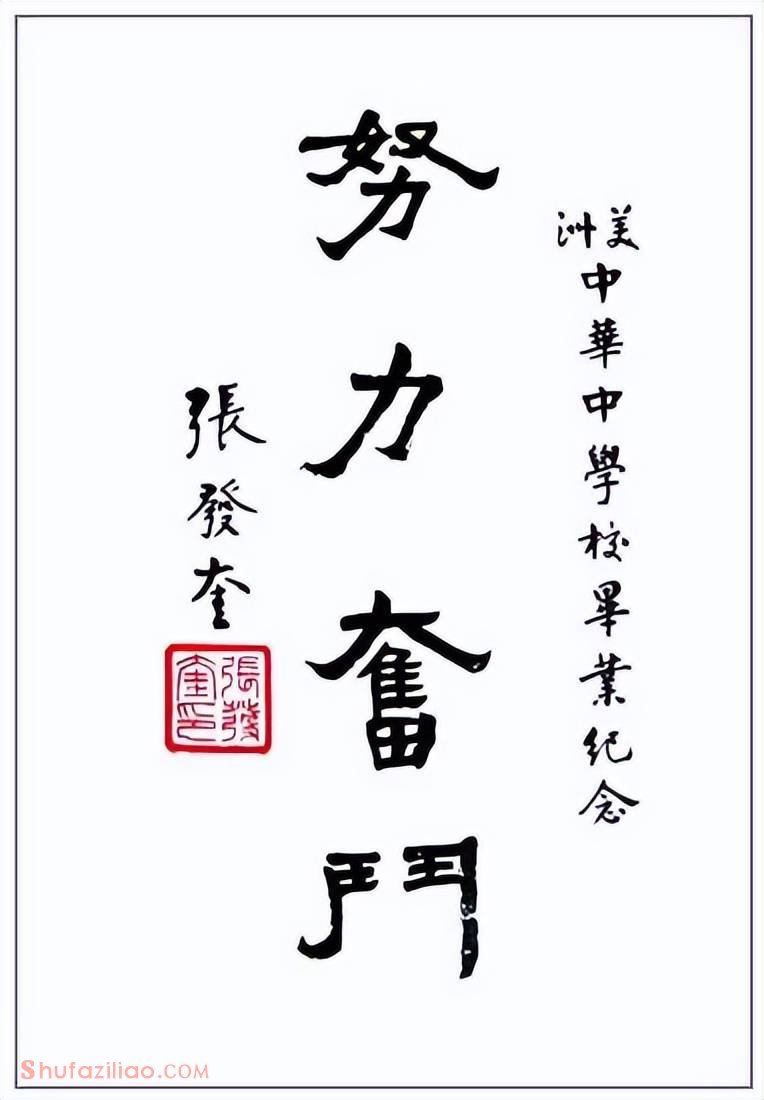 美洲中華中學校畢業紀念
努力奮鬥
張發奎
張發奎印
Shufaziliao.COM